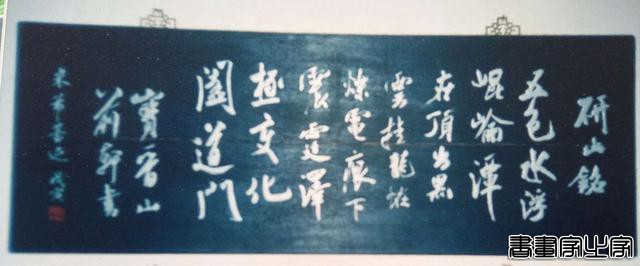 研山銘
五色水浮
崐崘潭
在頂出黑
雲挂龍
爍電痕下
震霆澤
極變化
闔道門
寶晉山
前軒書
書畫家止字